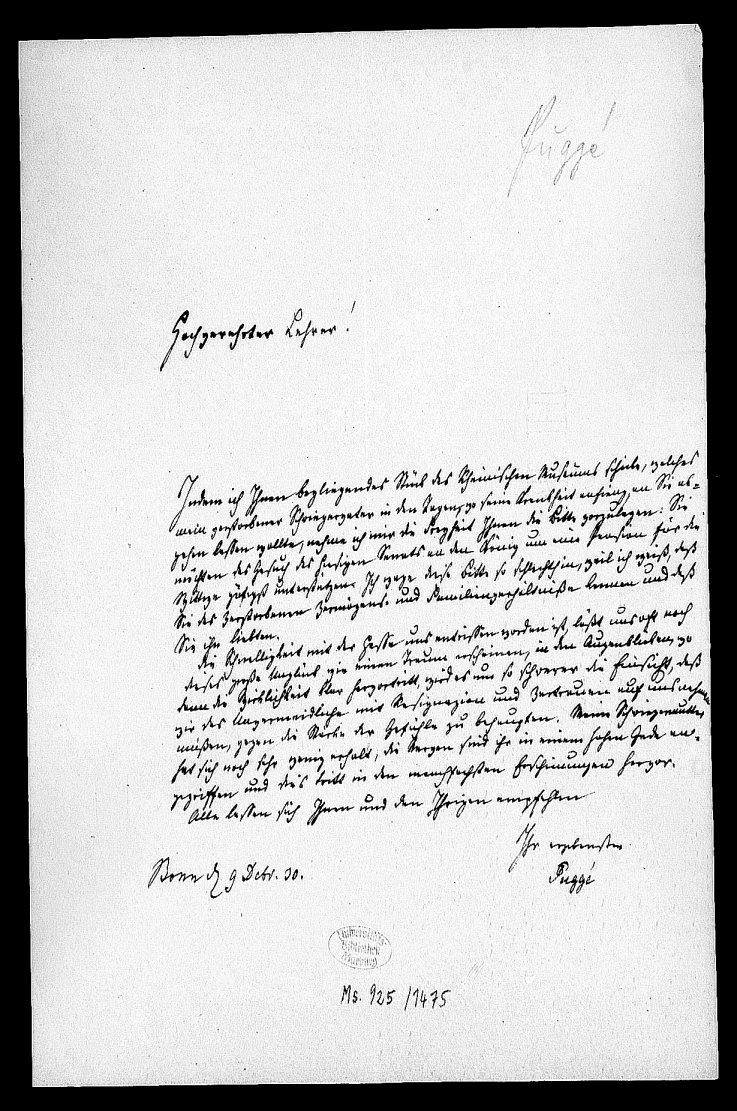 Puggé
Hochgeehrter Lehrer!
Indem ich Ihnen beyliegendes Stück des Rheinischen Museums schicke, welches
mein verstorbener Schwiegervater in den Tagen, wo seine Krankheit anfieng, an Sie ab=
gehen lassen wollte, nehme ich mir die Freyheit Ihnen die Bitte vorzulegen: Sie
möchten das Gesuch des hiesigen Senats an den König um eine Pension für die
Wittwe gütigst unterstützen. Ich wage diese Bitte so schlechthin, weil ich weiß, daß
Sie des Verstorbenen Vermögens- und Familienverhältniße kennen und daß
Sie ihn liebten.
Die Schnelligkeit mit der Er uns entrissen worden ist, läßt uns oft noch
dieses große Unglück wie einen Traum erscheinen, in den Augenblicken, wo
denn die Wirklichkeit klar hervortritt, wird es um so schwerer die Einsicht, daß
wir das Unvermeidliche mit Resignazion und Vertrauen auf uns nehmen
müßen, gegen die Stärke der Gefühle zu behaupten. Meine Schwiegermutter
hat sich noch sehr wenig erholt, die Nerven sind ihr in einem hohen Grade an=
gegriffen und dies tritt in den mannigfachsten Erscheinungen hervor.
Alle lassen sich Ihnen und den Ihrigen empfehlen
Ihr ergebenster
Puggé
Bonn d 9 Debr. 30.
Universitäts-
Bibliothek
Marburg
Ms. 925/1475